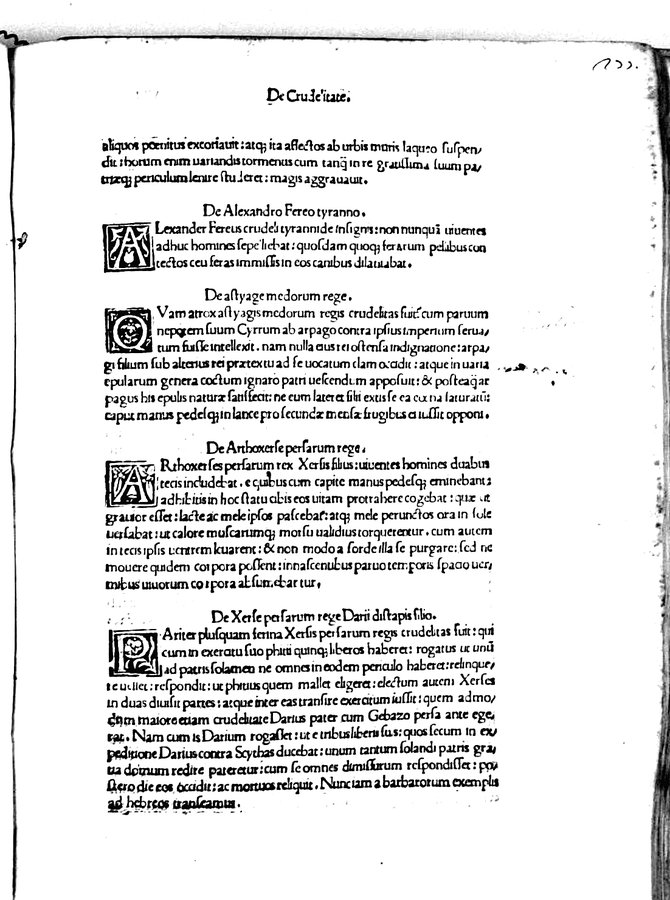 133.
De Crudelitate.
aliquos poenitus excoriauit: atq; ita affectos ab urbis muris laqueo suspen/
dit: horum enim uariandis tormentis cum tanq̃ in re grauissima suum pa/
trieq; periculum lenire studeret: magis aggrauauit.
De Alexandro Fereo tyranno.
ALexander Fereus crudeli tyrannide insignis: non nunquã uiuentes
adhuc homines sepeliebat: quosdam quoq; ferarum pellibus con
tectos ceu feras immissis in eos canibus dilaniabat.
De astyage medorum rege.
QVam atrox astyagis medorum regis crudelitas fuit: cum paruum
nepotem suum Cyrrum ab arpago contra ipsius imperium serua/
tum fuisse intellexit. nam nulla eius rei ostensa indignatione: arpa/
gi filium sub alterius rei prætextu ad se uocatum clam occidit: atque in uaria
epularum genera coctum ignaro patri uescendum apposuit: & posteaq̃ ar
pagus his epulis naturæ satisfecit: ne eum lateret filii exta se ea cœna saturatũ:
caput manus pedesq; in lance pro secundæ mensæ frugibus ei iussit opponi.
De Arthoxerse persarum rege.
ARthoxerses persarum rex Xersis filius: uiuentes homines duabus
tecis includebat. e quibus cum capite manus pedesq; eminebant:
adhibitis in hoc statu cibis eos uitam protrahere cogebat: quæ ut
grauior esset: lacte ac mele ipsos pascebat: atq; mele perunctos ora in sole
uersabat: ut calore muscarumq; morsu ualidius torquerentur. cum autem
in tecis ipsis uentrem leuarent: & non modo a sorde illa se purgare: sed ne
mouere quidem corpora possent: innascentibus paruo temporis spacio uer
mibus uiuorum corpora absumebantur.
De Xerse persarum rege Darii distapis filio.
PAriter plusquam ferina Xersis persarum regis crudelitas fuit: qui
cum in exercitu suo phitii quinq; liberos haberet: rogatus ut unũ
ad patris solamen ne omnes in eodem periculo haberet: relinque/
re uellet: respondit: ut phitius quem mallet eligeret: electum autem Xerses
in duas diuisit partes: atque inter eas transire exercitum iussit: quem admo/
dum maiore etiam crudelitate Darius pater cum Gebazo persa ante ege/
rat. Nam cum is Darium rogasset: ut e tribus liberis suis: quos secum in ex/
peditione Darius contra Scythas ducebat: unum tantum solandi patris gra/
tia domum redire pateretur: cum se omnes dimissurum respondisset: po/
stero die eos occidit: ac mortuos reliquit. Nunc iam a barbarorum exemplis
ad hebreos transeamus.